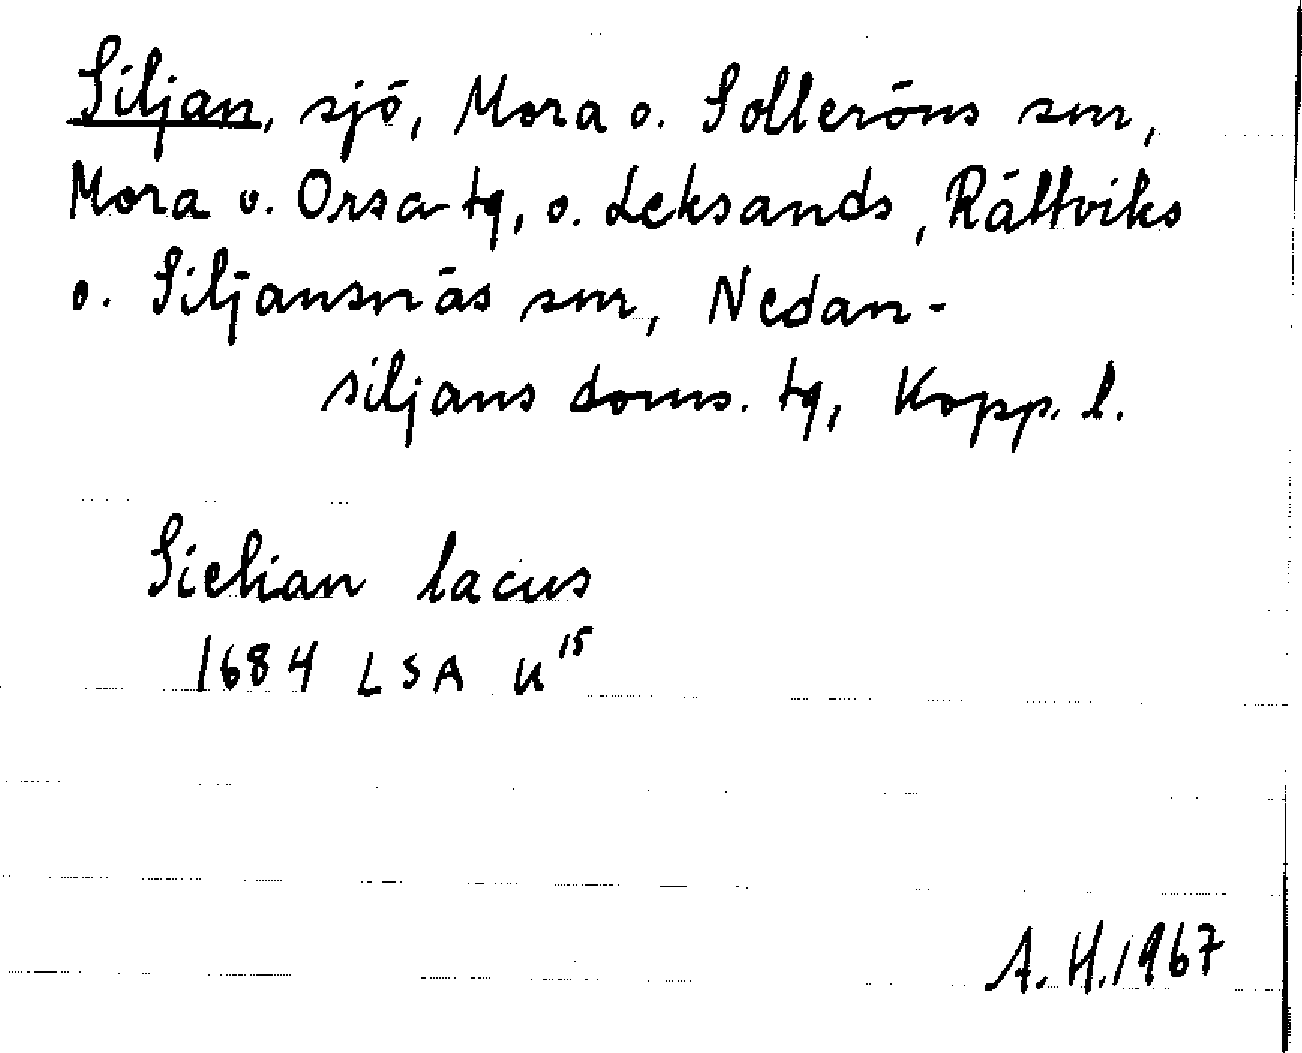 Siljan, sjö, Mora o. Solleröns snr,
Mora o. Orsa tg, o. Leksands, Rättviks
o. Siljansnäs snr, Nedan-
siljans doms. tg, Kopp. l.
Sielian lacus
1684 LSA U 15
A. H. 1967